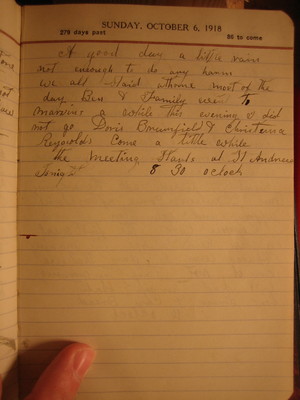 SUNDAY, OCTOBER 6, 1918
279 days past
86 to come
A good day a little rain
not enough to do any harm
we all staid home most of the
day Ben & Family went To
a while this evening I did
not go Doris Brumfield & Christena
Reynolds Come a little while
The Meeting Starts at St Andrews
8 30 oclock